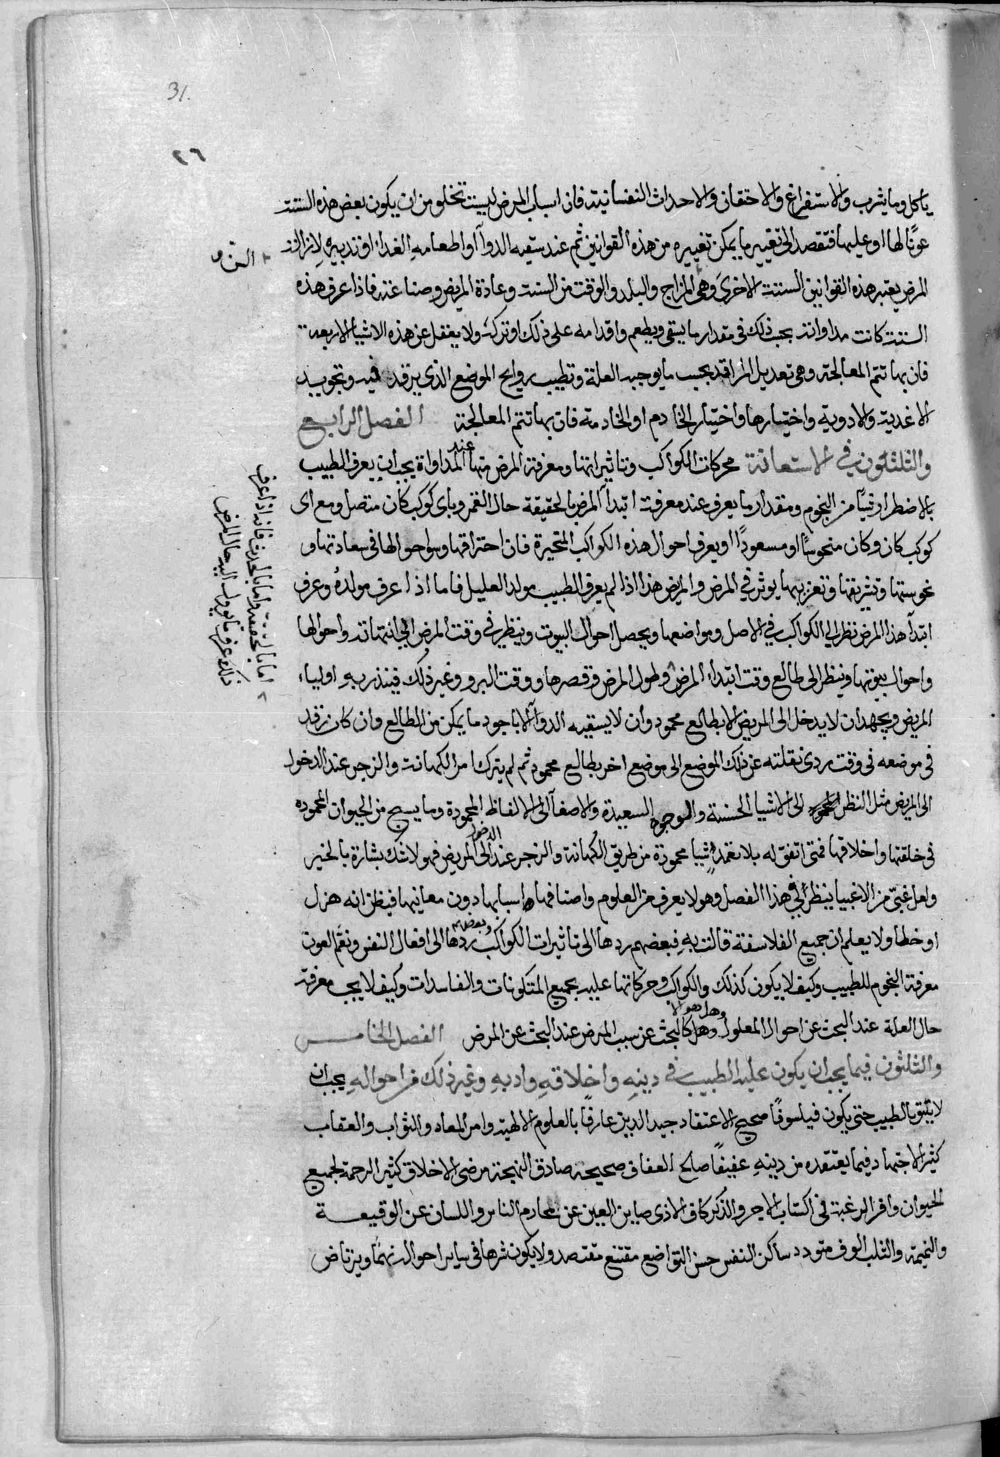 31.
٢٦
ياكل وما يشرب والاستفراغ والاحتقان والاحداث النفسانية فان اسباب المرض ليست تخلو من ان يكون بعض هذه الستة
عونًا لها او عليها فتقصد الى تغيير ما يمكن تغييره من هذه القوانين ثم عند سقيه الدوآ او اطعامه الغداء او تدبيره لازالة
المرض يعتبر هذه القوانين الستة الاخرى وهى المزاج والبلد والوقت من السنة وعادة المريض وصناعته فاذا عرف هذه
الستة كانت مداواته بحسب ذلك فى مقدار ما يسقى ويطعم واقدامه على ذلك او تركه ولا يغفل عن هذه الاشيا الاربعة
فان بها تتم المعالجة وهى تعديل المراقد بحسب ما يوجبه العلة وتطييب روايح الموضع الذى يرقد فيه وتجويد
الاغدية والادوية واختيارها واختيار الخادم او الخادمة فان بها تتم المعالجة الفصل الرابع
والثلثون فى الاستعانة بحركات الكواكب وتاثيراتها ومعرفة المرض منها عند المداواة يجب ان يعرف الطبيب
بالاضطرار شيًا من النجوم ومقدار ما يعرف عند معرفت ابتدآ المرض بالحقيقة حال القمر وباى كوكب كان متصل ومع اى
كوكب كان وكان منحوسًا او مسعودًا او يعرف احوال هذه الكواكب المتحيرة فان احتراقها وسواحوالها فى سعادتها و
نحوستها وتشريقها وتغريبها يوثر فى المرض والمريض هذا اذا لم يعرف الطبيب مولد العليل فاما اذا عرف مولدهُ وعرف
ابتدا هذا المرض نظر الى الكواكب فى الاصل ومواضعها ويحصل احوال البيوت وينظر فى وقت المرض الى انتهاته واحوالها
واحوال بيوتها وينظر الى طالع وقت ابتداء المرض وطول المرض وقصرها ووقت البرو وغير ذلك فينذر به اولياء
المريض ويجهد ان لا يدخل الى المريض الا بطالع محمود وان لا يسقيه الدوآ الا باجود ما يمكن من المطالع وان كان رقد
فى موضعه فى وقت ردى نقلته عن ذلك الموضع الى موضع اخر بطالع محمود ثم لم يترك امر الكهانة والزجر عند الدخول
الى المريض مثل النظر الى الاشيا الحسنة والوجوه السعيدة والاصغآ الى الالفاظ المحمودة وما يسبح من الحيوان المحموده
فى خلقتها واخلاقها فمتى اتفق له بلا تعمد اشيا محمودة من طريق الكهانة والزجر عند الدخول الى المريض فهو لا شك بشارة بالخير
ولعل غبى من الاغبيا ينظر فى هذا الفصل وهو لا يعرف من العلوم واصنافها واسبابها دون معانيها فيظن انه هزل
او خطا ولا يعلم ان جميع الفلاسفة قالت به فبعضهم ردها الى تاثيرات الكواكب وبعضهم ردها الى افعال النفس ونعم العون
معرفة النجوم للطبيب وكيف لا يكون كذلك والكواكب وحركاتها عليه بجميع المتكونات والفاسدات وكيف لا يجب معرفة
حال العلة عند البحث عن احوال المعلول وهل هو الا كالبحث عن سبب المرض عند البحث عن المرض الفصل الخامس
والثلثون فيما يجب ان يكون عليه الطبيب فى دينه واخلاقه وادبه وغير ذلك من احواله يجب ان
لا يثق بالطبيب حتى يكون فيلسوفًا صحيح الاعتقاد جيد الدين عارفًا بالعلوم الالهية وامر المعاد والثواب والعقاب
كثير الاجتهاد فيما يعتقده من دينه عفيفًا صالح العفاف صحيحه صادق اللهجة مرضى الاخلاق كثير الرحمة لجميع
الحيوان وافر الرغبة فى اكتساب الاجر والذكر كاف الاذى صاين العين عن محارم الناس واللسان عن الوقيعة
والنميمة والثلب الوف متودد ساكن النفس حسن التواضع مقنع مقتصد ولا يكون شرها فى ساير احواله نهمًا ويرتاض
اما بالحقيقة واما بالحدس فانه اذا عرف
ذلك عرف ما يوول اليه حال المرض